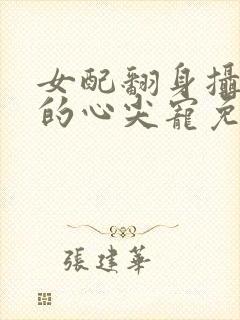 女配翻身攝
的心尖寵免
張建華